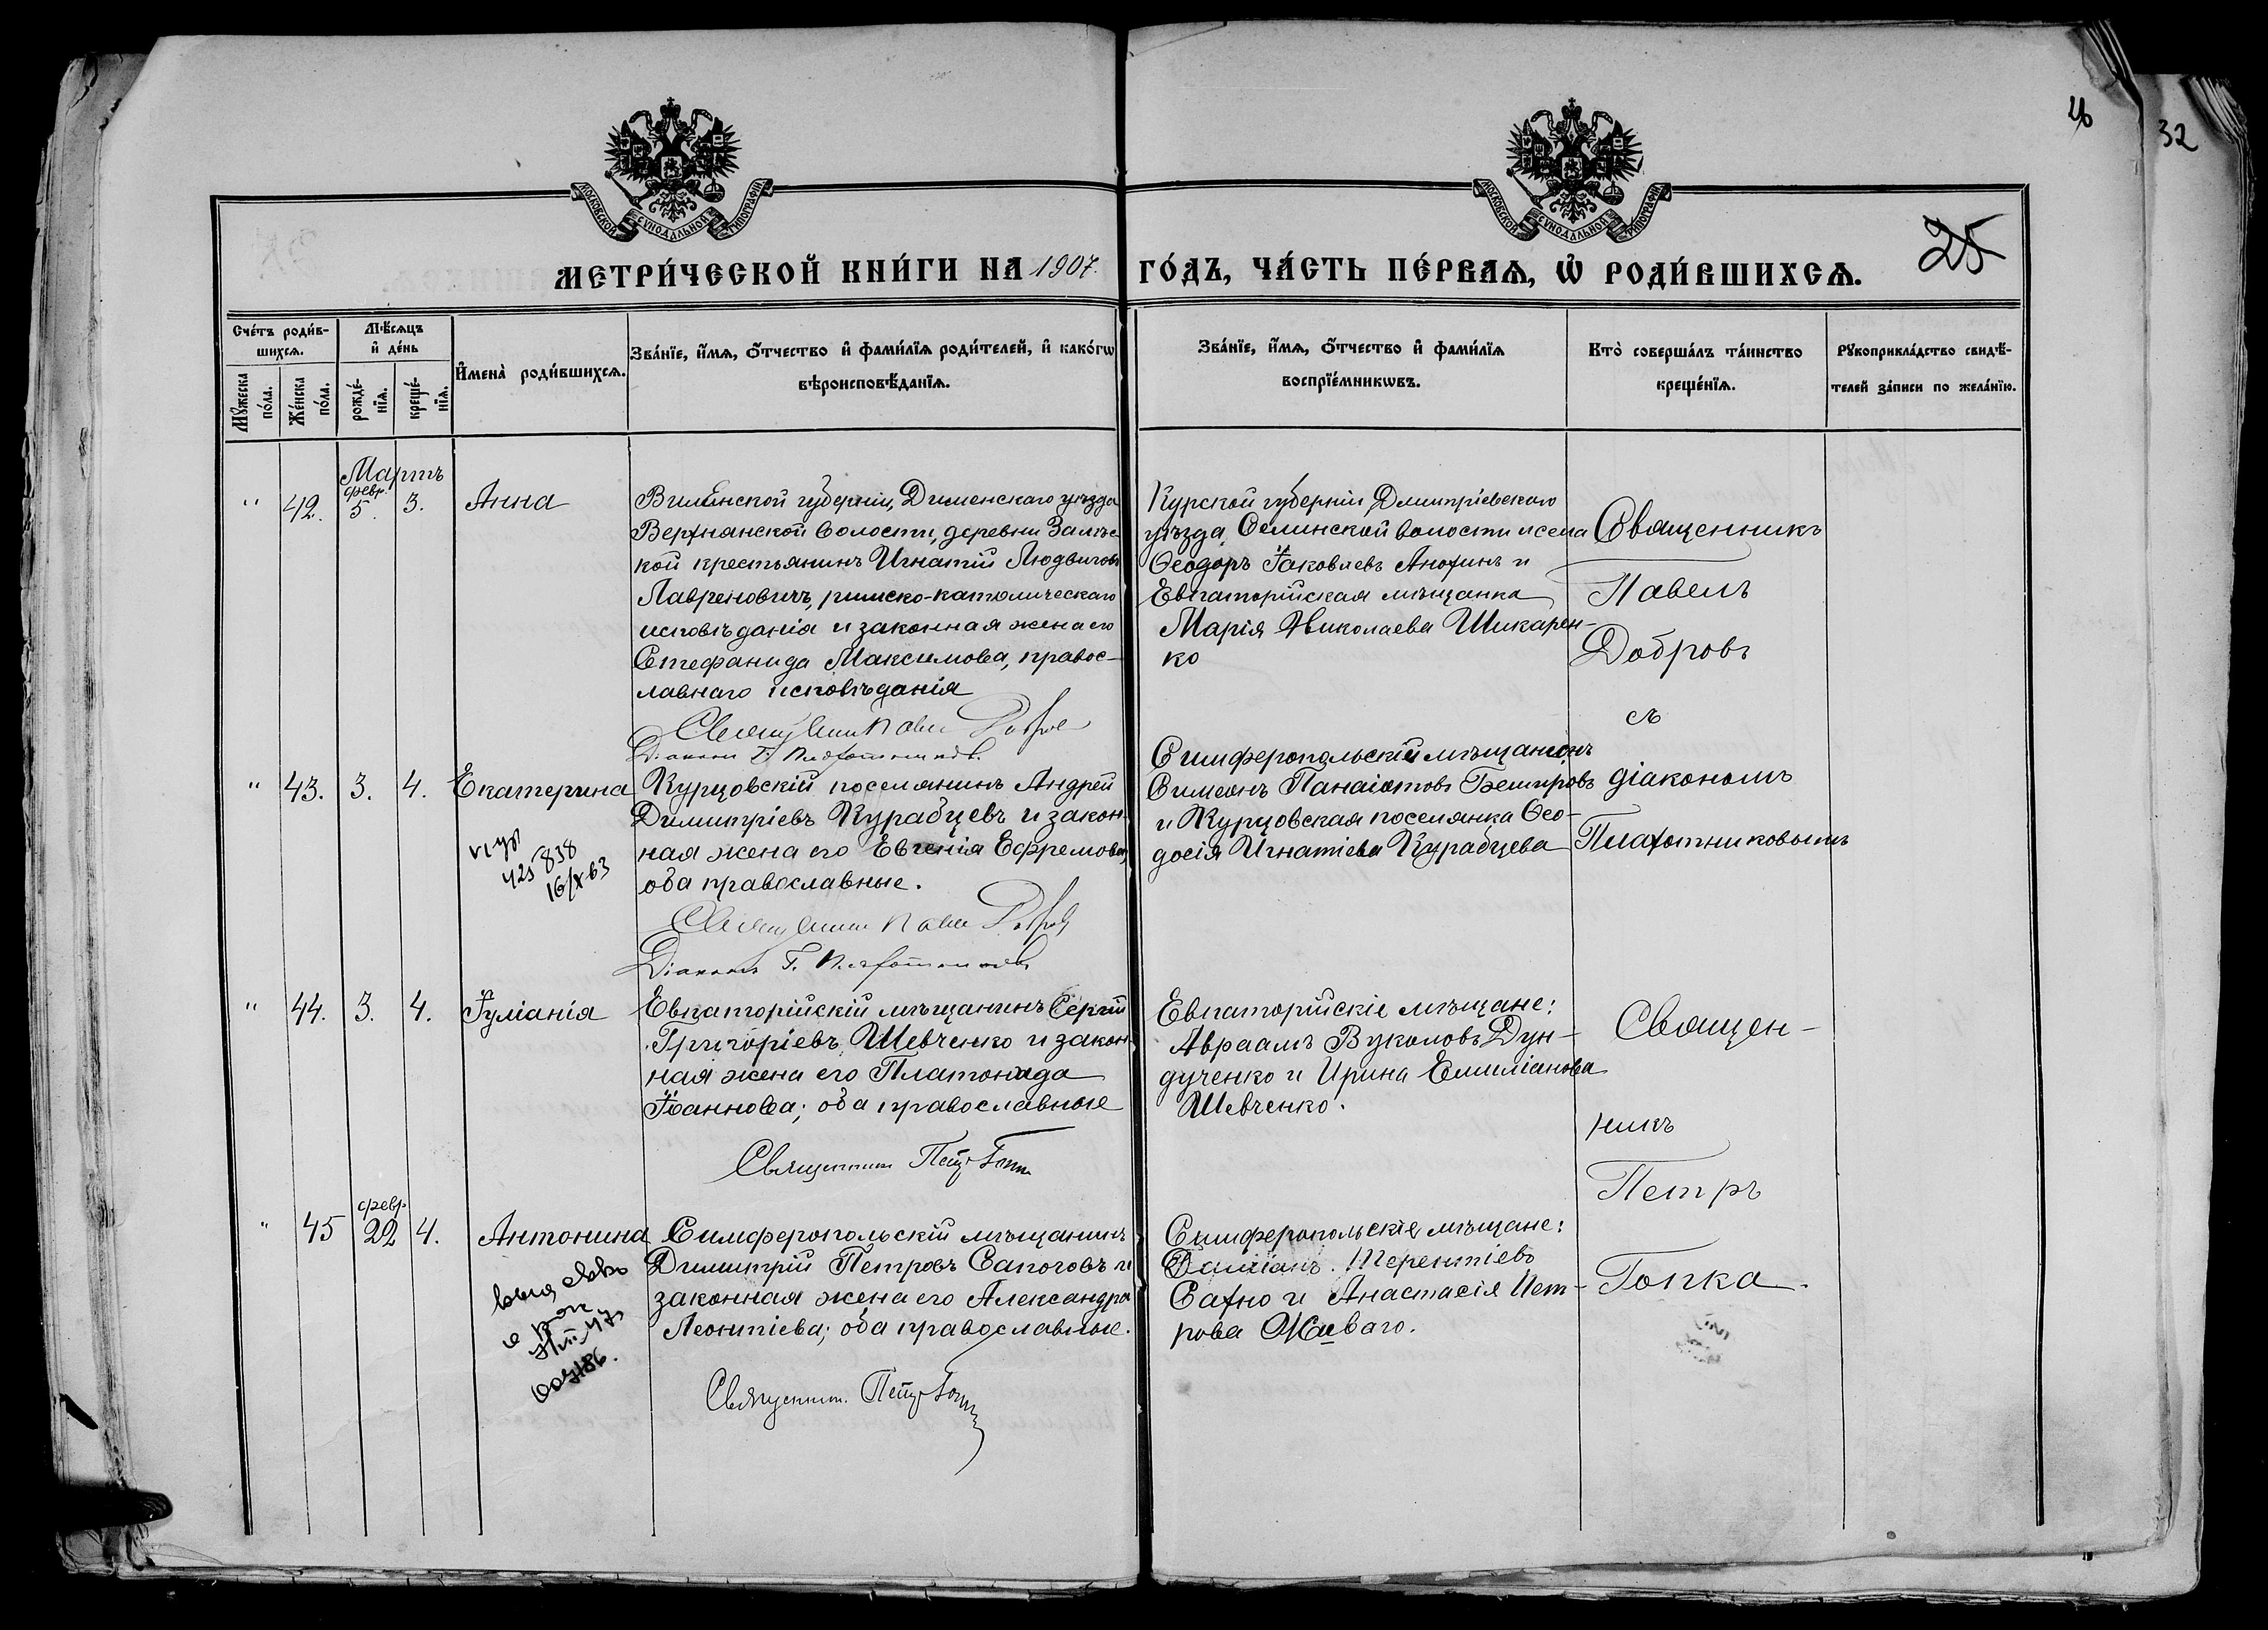 26
32
МОСКОВСКОЙ СѴНОДАЛЬНОЙ ТИПОГРАФІИ
МОСКОВСКОЙ СѴНОДАЛЬНОЙ ТИПОГРАФІИ
25
МЕТРИ́ЧЕСКОЙ КНИ́ГИ НА 1907. ГО́ДЪ, ЧА́СТЬ ПЕ́РВАѦ, Ѡ҆ РОДИ́ВШИХСѦ.
Сче́тъ роди́в-
шихсѧ.
Мꙋ́жеска по́ла.
Же́нска по́ла.
Мѣ́сѧцъ
и҆ де́нь
рожде́-
нїѧ.
креще́-
нїѧ.
И҆мена̀ роди́вшихсѧ.
Зва́нїе, и҆́мѧ, ѻ҆́тчество и҆ фами́лїѧ роди́телей, и҆ како́гѡ
вѣроисповѣ́данїѧ.
Зва́нїе, и҆́мѧ, ѻ҆́тчество и҆ фами́лїѧ
воспрїе́мникѡвъ.
Кто̀ соверша́лъ та́инство
креще́нїѧ.
Рꙋкоприкла́дство свидѣ́-
телей за́писи по жела́нїю.
Мартъ
" 42. февр. 5. 3. Анна
Виленской губерніи, Дисненскаго уѣзда
Верхнянской волости, деревни Залѣс
кой крестьянинъ Игнатій Людвиговъ
Лавреновичъ, римско-католическаго
исповѣданія и законная жена его
Стефанида Максимова, правос-
лавнаго исповѣданія
Священникъ Павелъ Добровъ
Діаконъ Г. Плахотниковъ.
Курской губерніи, Дмитріевскаго
уѣзда, Селинской волости и села
Ѳеодоръ Іаковлевъ Анохинъ и
Евпаторійская мѣщанка
Марія Николаева Шикарен-
ко
Священникъ
Павелъ
Добровъ
съ
діакономъ
Плахотниковымъ
" 43. 3. 4. Екатерина
425838
16/X-63
Курцовскій поселянинъ Андрей
Димитріевъ Курабцевъ и закон-
ная жена его Евгенія Ефремова,
оба православные.
Священникъ Павелъ Добровъ
Діаконъ Г. Плахотниковъ
Симферопольскій мѣщанинъ
Симеонъ Панаіотовъ Бемировъ
и Курцовская поселянка Ѳео-
досія Игнатіева Курабцева
" 44. 3. 4. Іуліанія
Евпаторійскій мѣщанинъ Сергій
Григоріевъ Шевченко и закон-
ная жена его Платонида
Іоаннова; оба православные
Священникъ Петръ Гопка
Евпаторійскіе мѣщане:
Авраамъ Вуколовъ Дун-
дученко и Ирина Емиліанова
Шевченко.
Священ-
никъ
Петръ
Гопка.
" 45 февр. 22 4. Антонина
Симферопольскій мѣщанинъ
Димитрій Петровъ Сапоговъ и
законная жена его Александра
Леонтіева; оба православные.
Священникъ Петръ Гопка
Симферопольскіе мѣщане:
Даміанъ Терентіевъ
Сахно и Анастасія Пет-
рова Живаго.